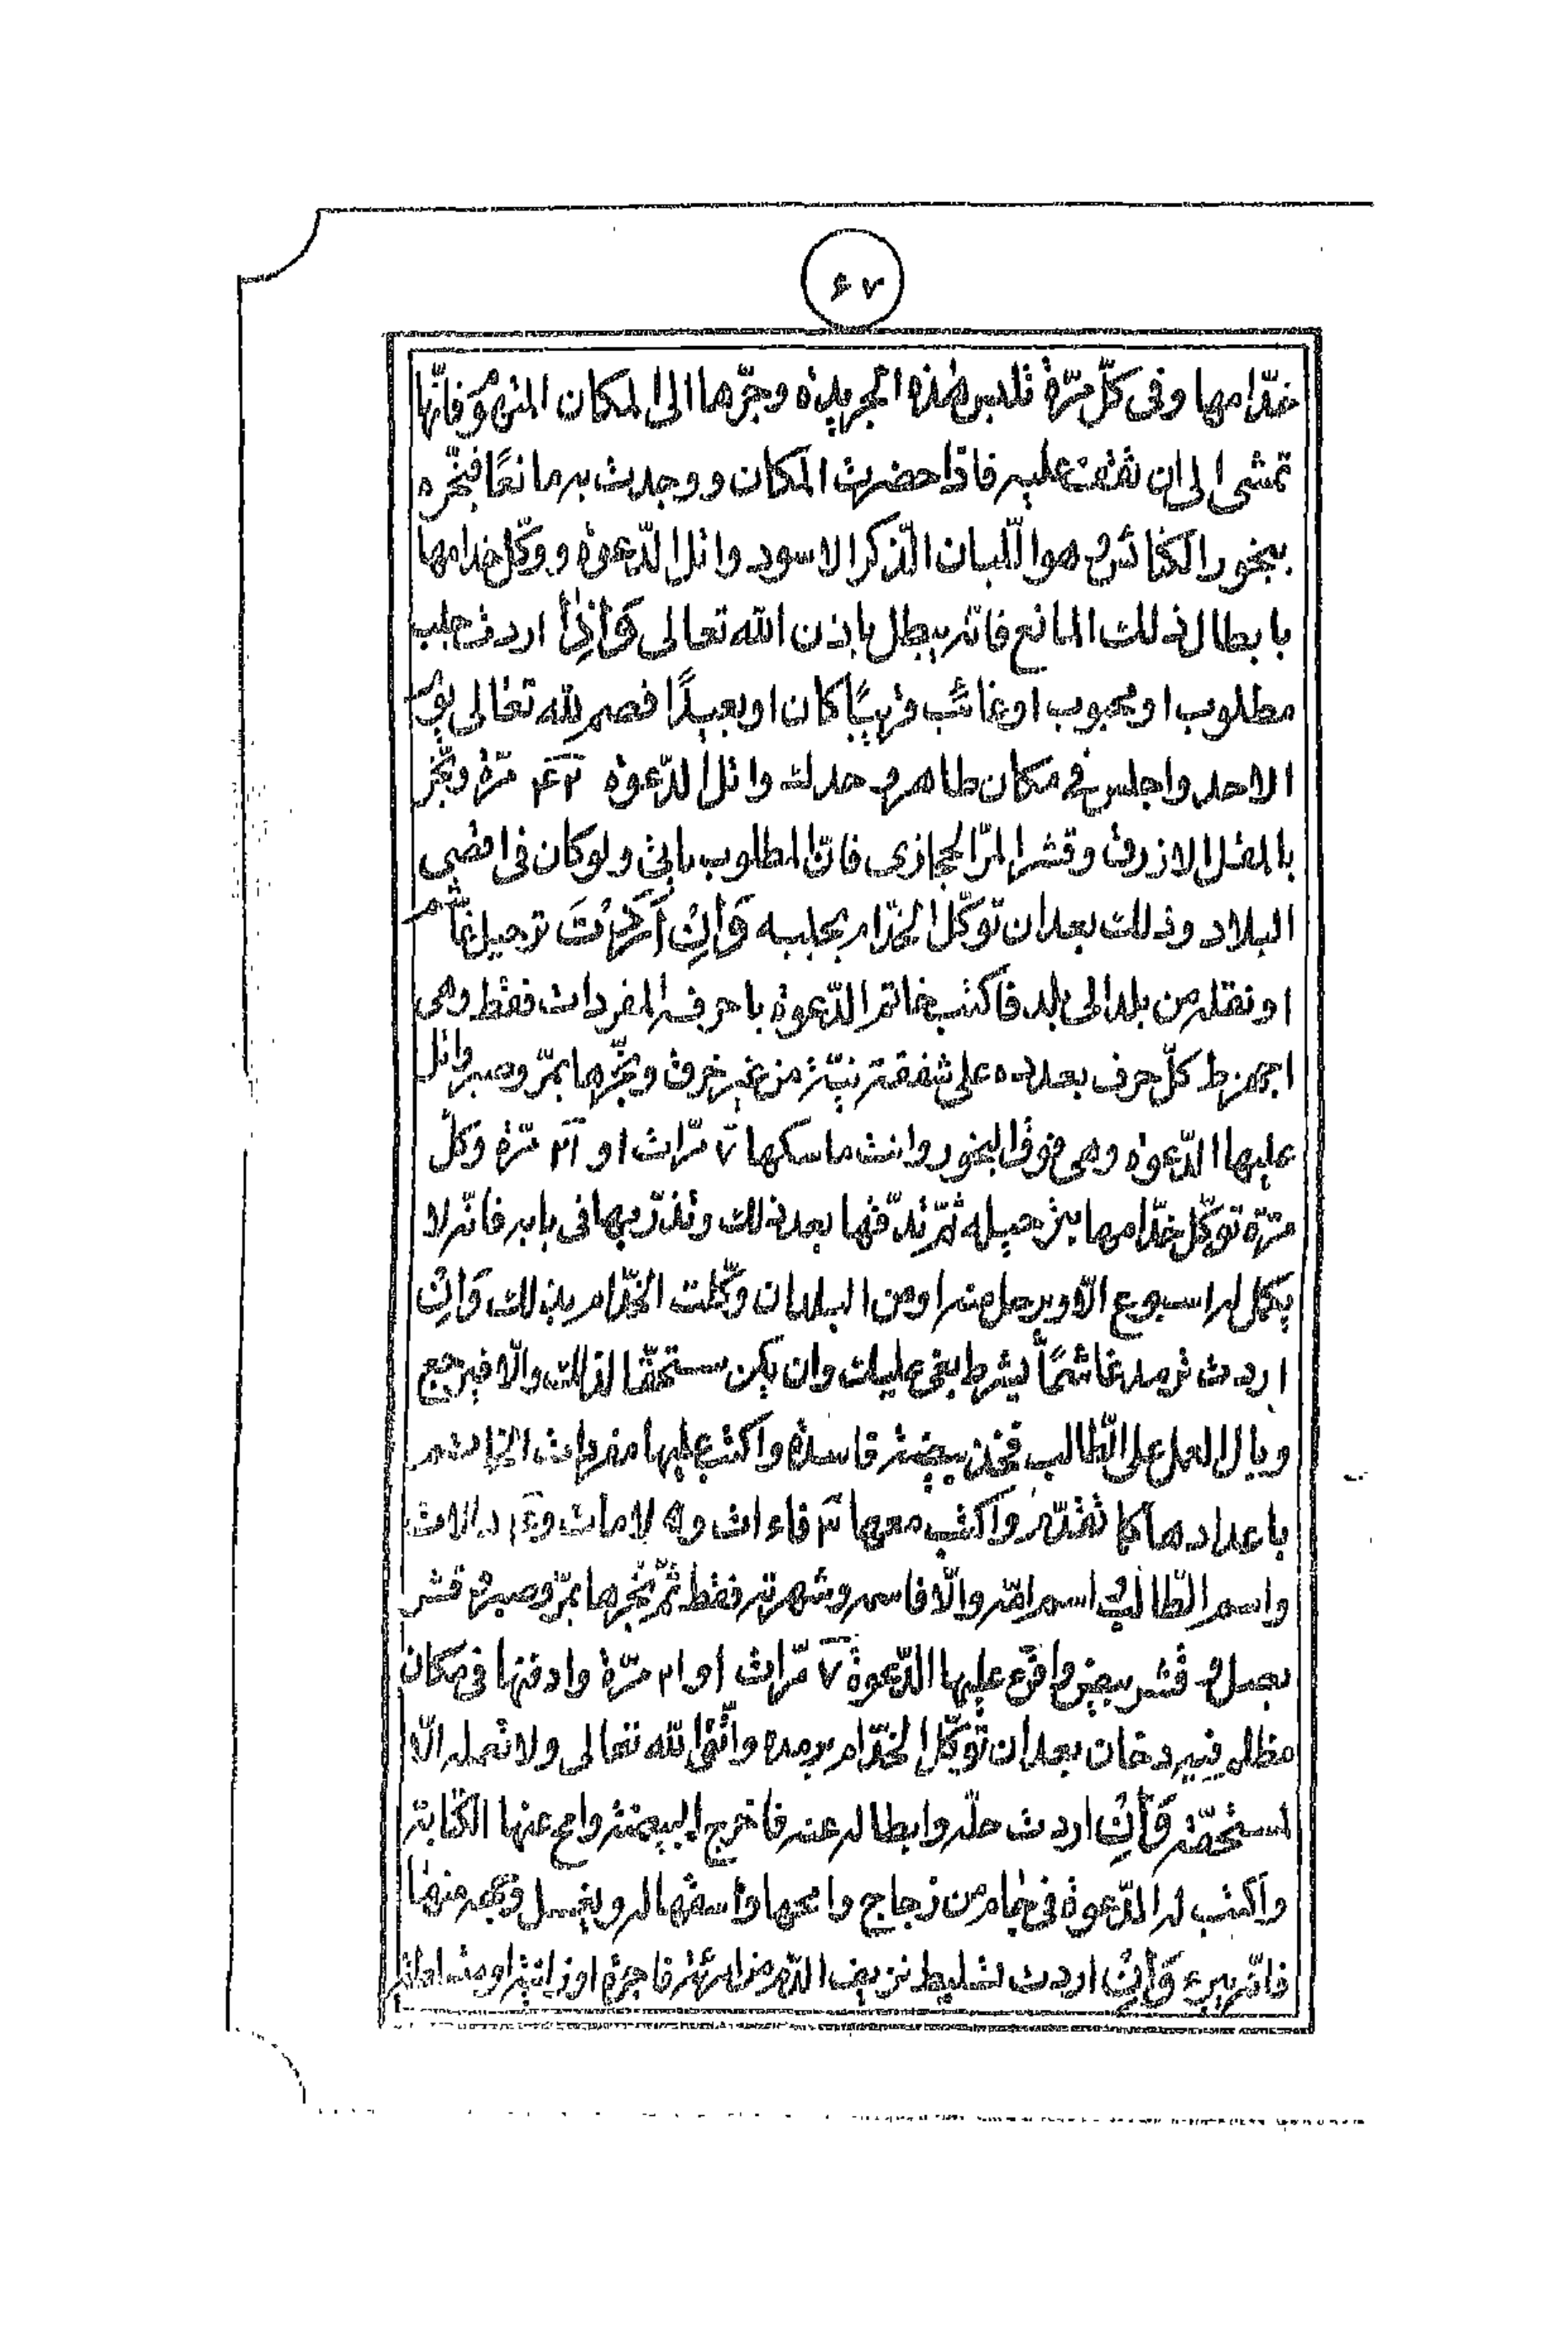 ۶۷
خدّامها وفى كلّ مرّة تلبس هذه الجريدة وجرّها الى المكان المتهوم فانّها
تمشى الى ان تقف عليه فاذا حضرت المكان ووجدت به مانعًا فبخّره
ببخور الكنائس وهو اللّبان الذّكر الاسود واتل الدّعوة ووكّل خدامها
بابطال ذلك المانع فانّه يبطل باذن الله تعالى وَاِذا اردت جلب
مطلوب او محبوب او غائب قريبًا كان او بعيدًا فصم لله تعالى يوم
الاحد واجلس فى مكان طاهر وحدك واتل الدّعوة مرّة وبخّر
بالمقل الازرق وقشر المرّ الحجازى فانّ المطلوب ياتى ولو كان فى اقصى
البلاد وذلك بعد ان توكّل الخدّام بجلبه وَاِنْ اَرَدْتَ ترحيل غاشم
او نقله من بلد الى بلد فاكتب خاتم الدّعوة باحرف المفردات فقط وهى
اجهزط كلّ حرف بعدده على شقفة نيّة من غير حرق وبخّرها بمرّ وصبر واتل
عليها الدّعوة وهى فوق البخور وانت ماسكها ۷ مرّات او ۲۱ مرّة وكلّ
مرّة توكّل خدّامها بترحيله ثمّ تدقّها بعد ذلك وتذرّيها فى بابه فانّه لا
يكمل له اسبوع الّا ويرحل منه او من البلد ان وكّلت الخدّام بذلك وَاِنْ
اردت ترمد غاشمًا بشرط بغى عليك وان يكن مستحقّا لذلك والّا فيرجع
وبال العمل على الطّالب فخذ بيضة فاسدة واكتب عليها مفردات الخاتم
باعدادها كما تقدّم واكتب معها ۳ فاءات و لامات و دالات
واسم الطّالب اسم امّه والّا فاسمه وشهرته فقط ثمّ بخّرها بمرّ وصبر وقشر
بصل وقشر بيض واقرء عليها الدّعوة ۷ مرّات او ۲۱ مرّة وادفنها فى مكان
مظلم فيه دخان بعد ان توكّل الخدّام برمده واتّق الله تعالى ولا تعمله الّا
لمستحقّه وَاِنْ اردت حلّه وابطاله عنه فاخرج البيضة وامح عنها الكتابة
واكتب له الدّعوة فى جام من زجاج وامحها واسقها له ويغسل وجهه منها
فانّه يبرء وَاِنْ اردت تسليط نزيف الدّم من امرئة فاجرة او زانية او